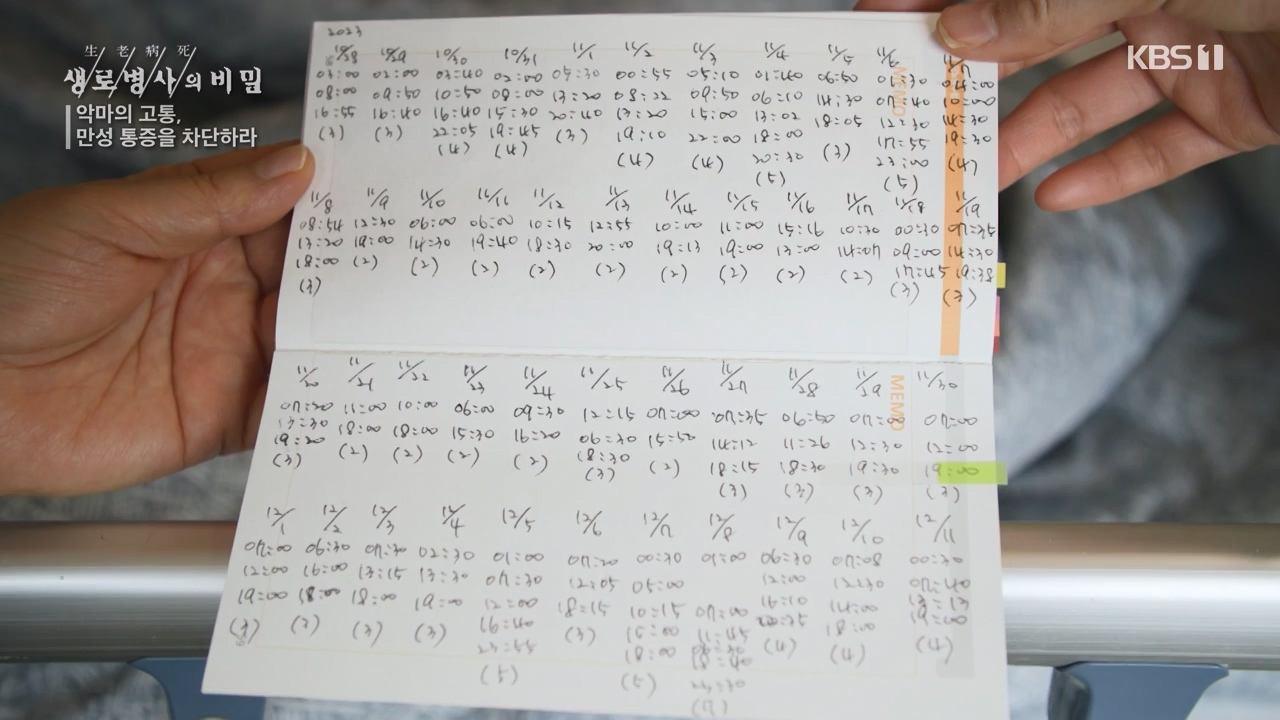 2023
生老病死
생로병사의 비밀
악마의 고통,
만성 통증을 차단하라
KBS1
MEMO
10/30 10/31 11/1 11/2 11/3 11/4 11/5 11/7
03:00 02:00 03:40 02:00 05:30 00:55 05:10 01:40 06:50 03:30 04:00
08:00 09:50 10:50 08:00 13:20 08:22 09:50 06:10 14:30 07:40 10:00
16:55 16:40 16:40 15:30 20:40 13:20 15:00 13:02 18:05 12:30 14:30
(3) (3) 22:05 19:45 (3) 19:10 22:00 18:00 (3) 17:55 19:30
(4) (4) (4) (4) 20:30 23:00 (4)
(5) (5)
11/8 11/9 11/10 11/11 11/12 11/13 11/14 11/15 11/16 11/17 11/18 11/19
08:54 12:30 06:00 06:00 10:15 12:55 10:00 11:00 15:16 10:30 00:30 07:35
13:20 19:00 14:30 19:40 18:30 20:00 19:13 19:00 13:00 14:07 09:00 14:30
18:00 (2) (2) (2) (2) (2) (2) (2) (2) (2) 17:45 19:38
(3) (3) (3)
MEMO
11/20 11/21 11/22 11/23 11/24 11/25 11/26 11/27 11/28 11/29 11/30
07:30 11:00 10:00 06:00 09:30 12:15 07:00 07:35 06:50 07:00
13:30 18:00 18:00 15:30 16:20 06:30 15:50 14:12 11:26 12:30 12:00
19:20 (2) (2) (2) (2) 18:30 (2) 18:15 18:30 19:30 19:00
(3) (3) (3) (3) (3) (3)
12/1 12/2 12/3 12/4 12/5 12/6 12/7 12/8 12/9 12/10 12/11
07:00 06:30 07:30 02:30 01:00 07:20 00:30 01:00 06:30 07:08 00:30
12:00 16:00 13:15 13:30 07:30 12:05 05:00 12:00 12:30 07:40
19:00 18:00 18:00 19:00 12:00 18:15 10:15 07:00 16:10 14:00 13:13
(3) (3) (3) (3) 16:40 (3) 15:00 11:45 18:00 19:00
18:00 (4) (4) (4)
(5) (5) 18:40
23:30
(7)